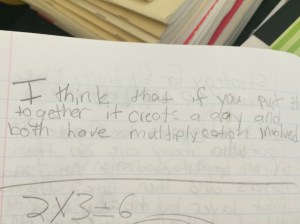 I think that if you put it
together it creats a day and
both have multiplycation involved
2X3=6